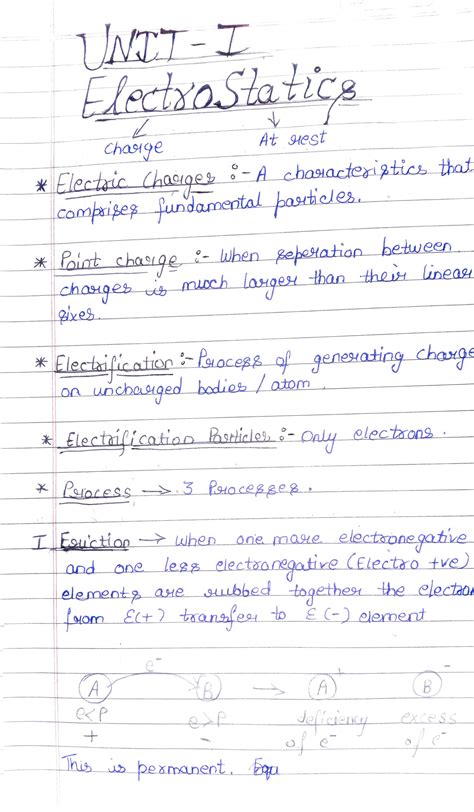 UNIT-I
ElectroStatics
charge At rest
* Electric Charges :- A characteristics that
comprises fundamental particles.
* Point charge :- when seperation between
charges is much larger than their linear
sizes.
* Electrification :- Process of generating charge
on uncharged bodies / atom.
* Electrification Particles :- only electrons.
* Process → 3 Processes.
I Friction → when one more electronegative
and one less electronegative (Electro +ve)
elements are rubbed together the electron
from E(+) transfer to E(-) element
e⁻
A B → A⁺ B⁻
e<P e>P deficiency excess
+ - of e⁻ of e⁻
This is permanent.